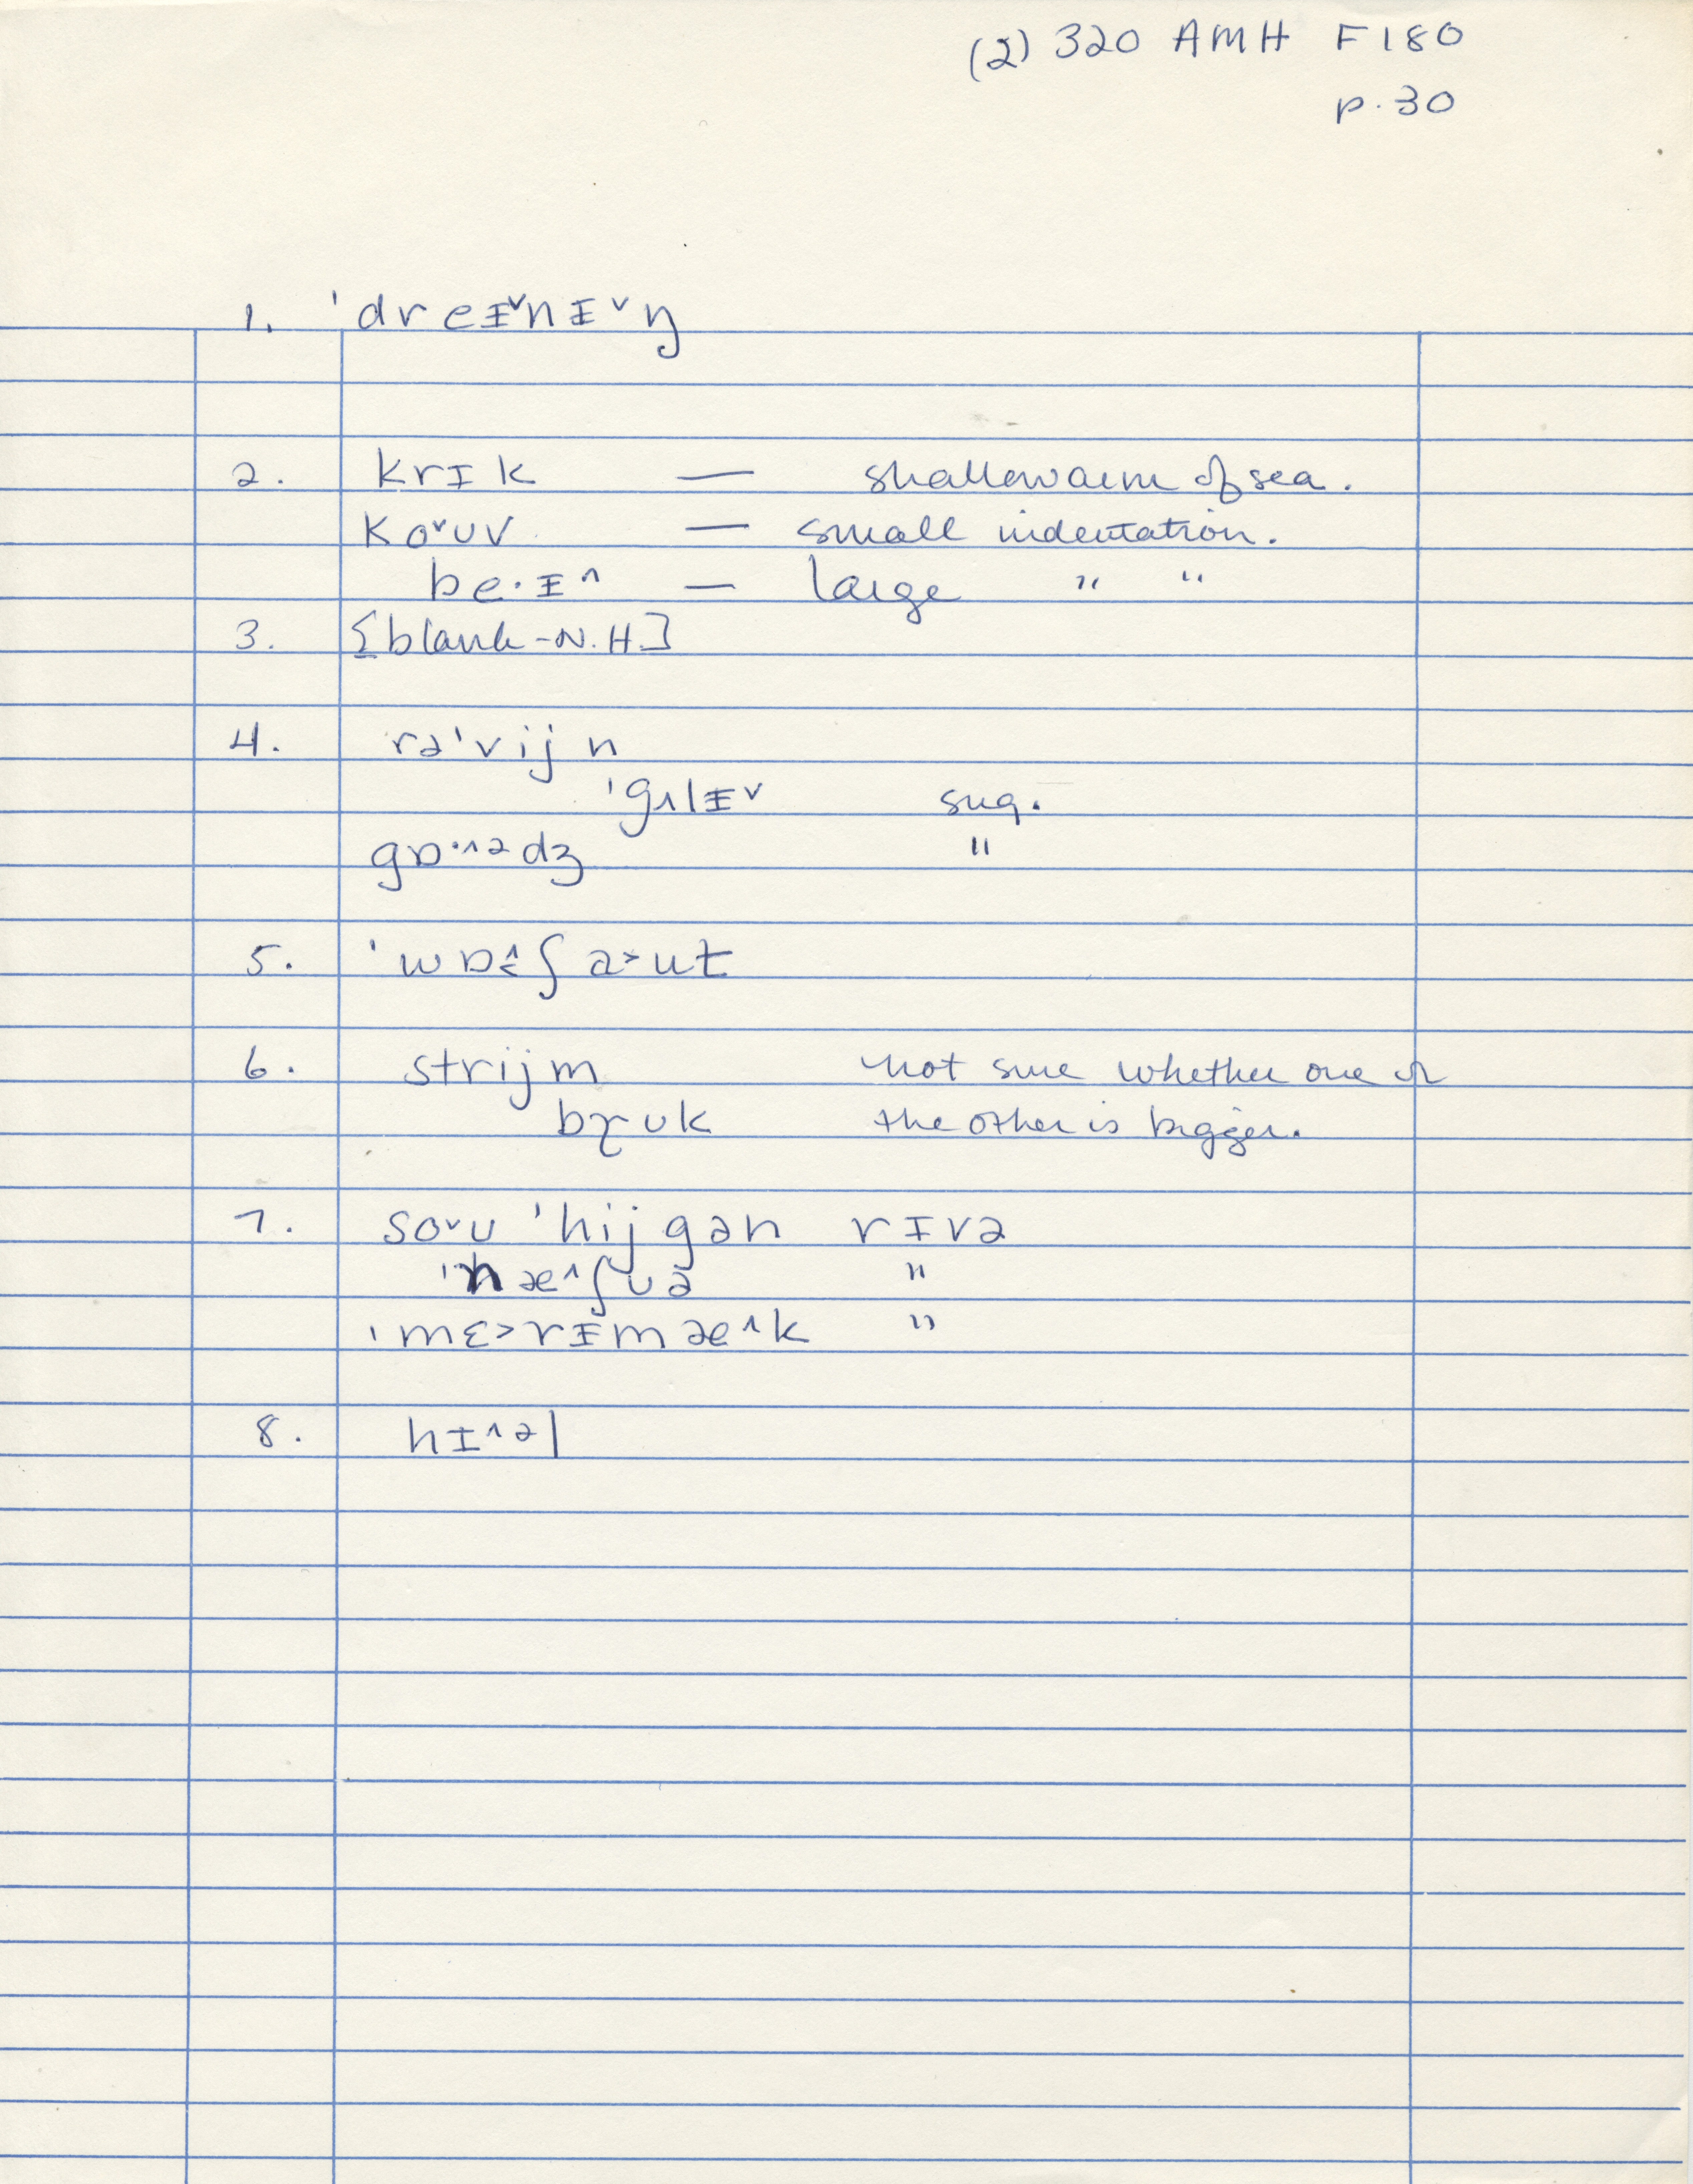 (2) 320 AMH F180
p. 30
1. ˈdreɪ̵ˇnɪ̵ˇŋ
2. krɪk — shallow arm of sea.
koˇʊv — small indentation.
be·ɪ̵^ — large " "
3. [blank - N.H.]
4. rəˈvijn
ˈgʌlɪ̵ˇ sug.
gɒ·^ədʒ "
5. ˈwɒ^˂ʃa˃ut
6. strijm not sure whether one or
bɽʊk the other is bigger.
7. soˇu ˈhijgən rɪvə
ˈnæ^ʃʊə "
ˈmɛ˃rɪ̵mæ^k "
8. hɪ^əl